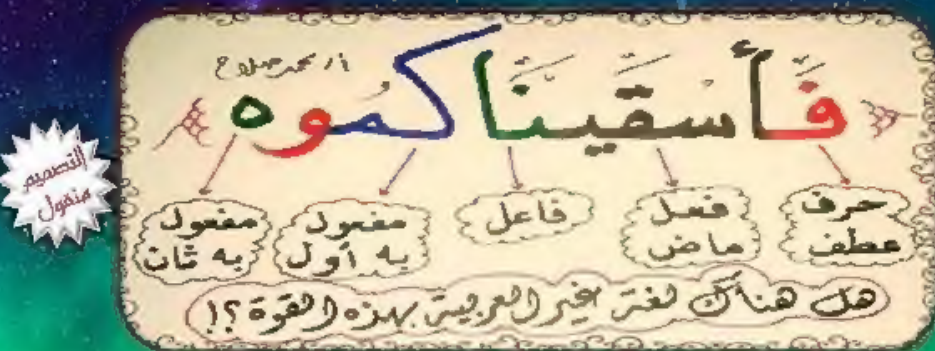 أ/ محمد صلاح
فَأَسْقَيْنَاكُمُوه
حرف
عطف
فعل
ماض
فاعل
مفعول
به أول
مفعول
به ثان
هل هناك لغة غير العربية بهذه القوة؟!
التصميم
منقول